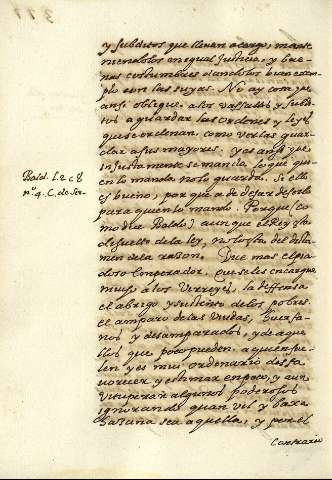 y subditos que lleuan a cargo, mante
niendolos en igual Justicia, y bue
nas costumbres dandolos buen exem
plo con las suyas. No ay cosa que
ansi obligue a los vassallos y subdi
tos a guardar las ordenes y leyes
que se ordenan, como verlas guar
dar a sus mayores, y es ansi que
injustamente se manda lo que qui
en lo manda no lo guarda. Si ello
es bueno, porque a de dejar de serlo
para quien lo mando. Porque (co
mo dize Baldo) aunque el Rey esta
desuelto de la ley, no lo esta del dicta
men de la razon. Que mas el pia
doso emperador, que se les encargue
mucho a los Virreyes, la deffensa
el abrigo y de los pobres
el amparo de las viudas, huerfa
nos y desamparados, y de aque
llos que poco pueden, a quien sue
len y es mui ordinario desfa
uorecer y estimar en poco, y aun
vituperar algunos poderosos
ignorando quan vil y baxa
hazaña sea aquella, y por el
Contrario
Bald. l. 2 c 8
nº 4. C. de Ser-